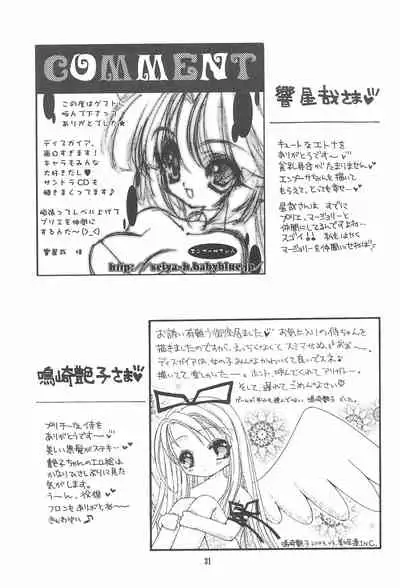 COMMENT
この度はゲストに
呼んで下さって
ありがとでした★
ディスガイア、
面白すぎます!
キャラもみんな
大好きだし♥
サントラCDも
聴きまくってます♪
頑張ってレベル上げて
プリエを仲間に
するんだ〜(>_<)
響星哉 拝
エンプーサちゃん
http://seiya-h.babyblue.jp/
響星哉さま♥
キュートなエトナを
ありがとうです〜♥
エンプーサちゃんも描いて
もらえて、とっても幸せ〜♥
星哉さんは すでに
プリエ、マージョリーと
仲間にしてるんですよね〜
スゴイ!! 私もはやく
マージョリーを仲間にせねば!
鳴崎艶子さま♥
プリチーな侍を
ありがとうです〜♥
美しい黒髪がステキー
艶子ちゃんのエロ絵は
かなりひさしぶりに見た
気がします。
うーん、役得
フロンもありがとね〜
きんちゃい♪
お誘い有難う御座居ました♥ お気に入りの侍ちゃんを
描きましたのですが、えっちくなくてスミマセぬ〜
ディスガイアは、女の子みんなかわいくて良いでスネ
描いてて楽しかったー。ホント、呼んでくれて アリガトー
そして、遅れて ごめんなさい○
鳴崎艶子
31